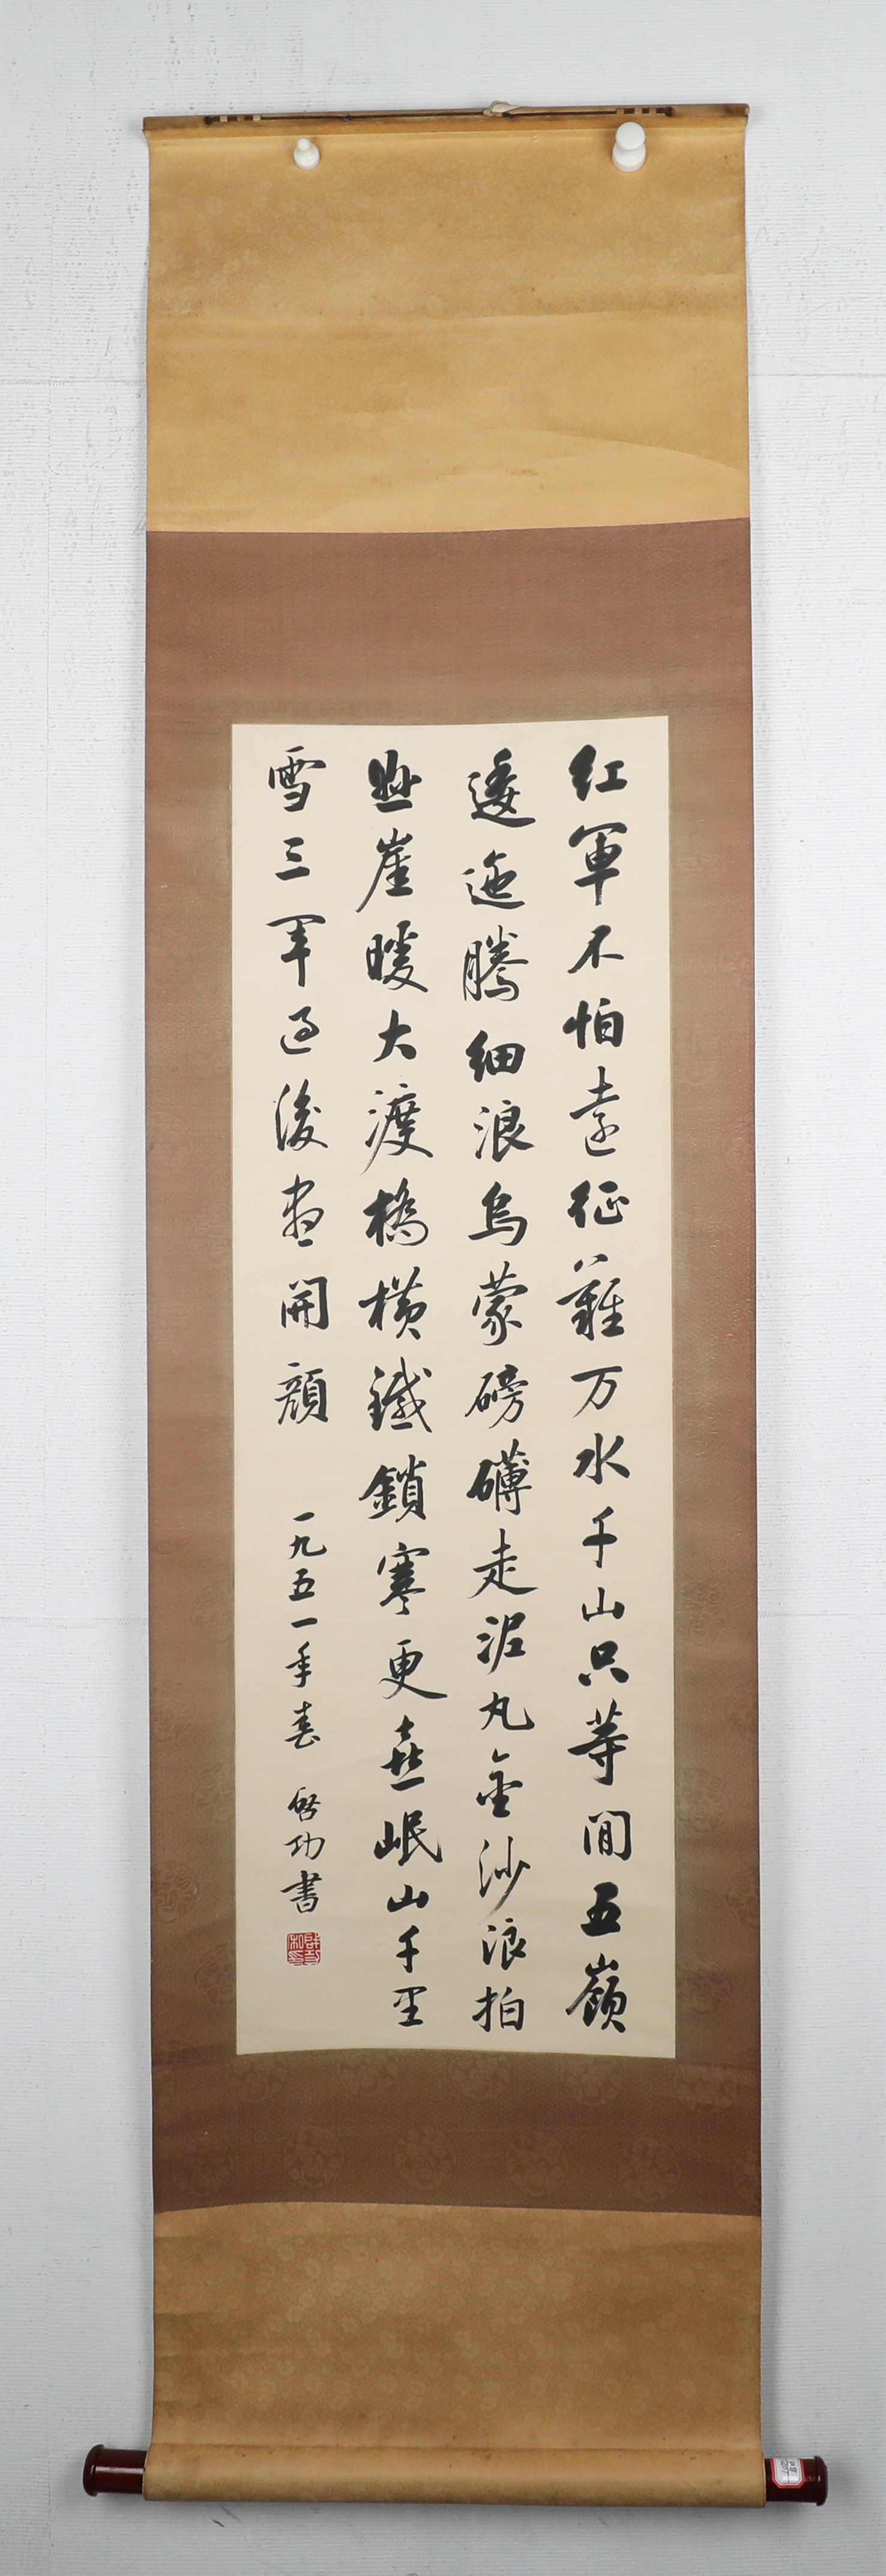 紅軍不怕遠征難万水千山只等閒五嶺
逶迤騰細浪烏蒙磅礴走泥丸金沙浪拍
懸崖暖大渡橋横鐵鎖寒更喜岷山千里
雪三軍過後盡開顔 一九五一年春 啓功書